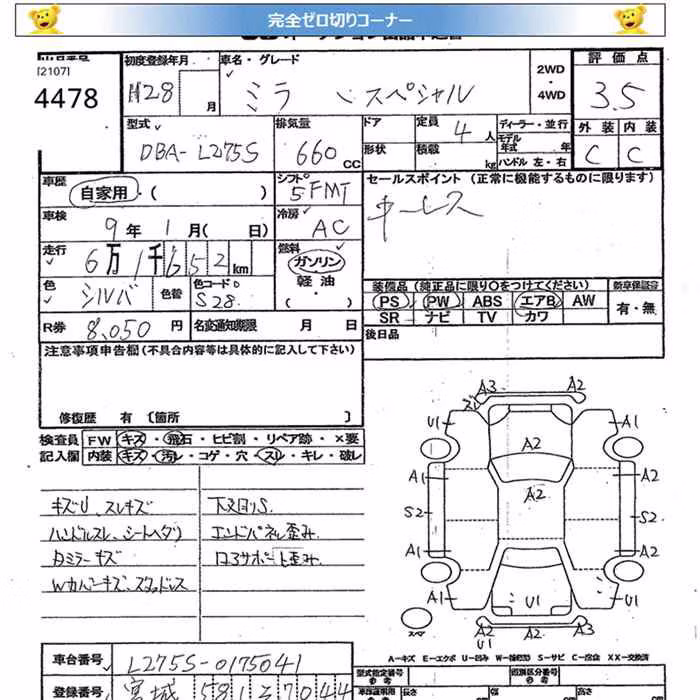 完全ゼロ切りコーナー
[2107]
4478
初度登録年月
H28 月
車名・グレード
ミラ スペシャル
2WD
・
4WD
評価点
3.5
外装 内装
C C
型式
DBA-L275S
排気量
660 CC
ドア
形状
定員 4 人
積載 kg
ディーラー・並行
モデル年式 年
ハンドル 左・右
車歴
自家用・( )
シフト
5FMT
セールスポイント (正常に機能するものに限ります)
キーレス
車検
9年1月( 日)
冷房
AC
走行
6万1千652km
燃料
ガソリン
軽油
・( )
色
シルバ
色替
色コード
S28
装備品 (純正品に限り○をつけてください)
PS PW ABS エアB AW
SR ナビ TV カワ
新車保証書
有・無
R券
8,050 円
名変通知期限 月 日
後日品
注意事項申告欄 (不具合内容等は具体的に記入して下さい)
修復歴 有 〔箇所 〕
検査員
記入欄
FW キズ・飛石・ヒビ割・リペア跡・×要
内装 キズ・汚レ・コゲ・穴・スレ・キレ・破レ
キズU、スレキズ
ハンドルスレ、シートヘタリ
Rミラーキズ
Wカバーキズ、スタッドレス
下又回りS
エンドパネル歪み
ロアサポート歪み
A3 A2
ズレ
U1 A1
A2
A1 A2
A2
S2 S2
A1 A2
A1 U1
U1
スペア
A2 A2 A3
U1
A-キズ E-エクボ U-凹み W-補修跡 S-サビ C-腐食 XX-交換済
車台番号
L275S-0175041
登録番号
宮城 581 そ 7044
型式指定番号
※参考
類別区分番号
※参考
※参考
長さ
幅
高さ